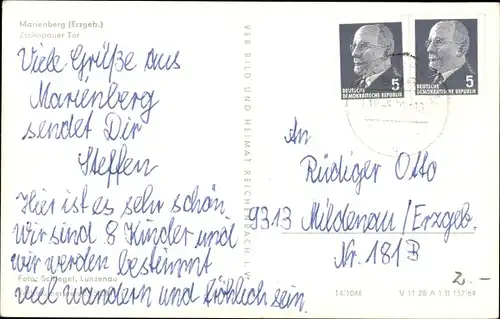 Marienberg (Erzgeb.)
Zschopauer Tor
Viele Grüße aus
Marienberg
sendet Dir
Steffen
Hier ist es sehr schön.
Wir sind 8 Kinder und
wir werden bestimmt
viel wandern und fröhlich sein.
Foto: Schlegel, Lunzenau
VERBILD UND HEIMAT REICHENBACH I. V.
5
DEUTSCHE
DEMOKRATISCHE REPUBLIK
5
DEUTSCHE
DEMOKRATISCHE REPUBLIK
An
Rüdiger Otto
9313 Mildenau/Erzgeb.
Nr. 181B
2.-
14/1046
V 11 28 A 1 B 157/64